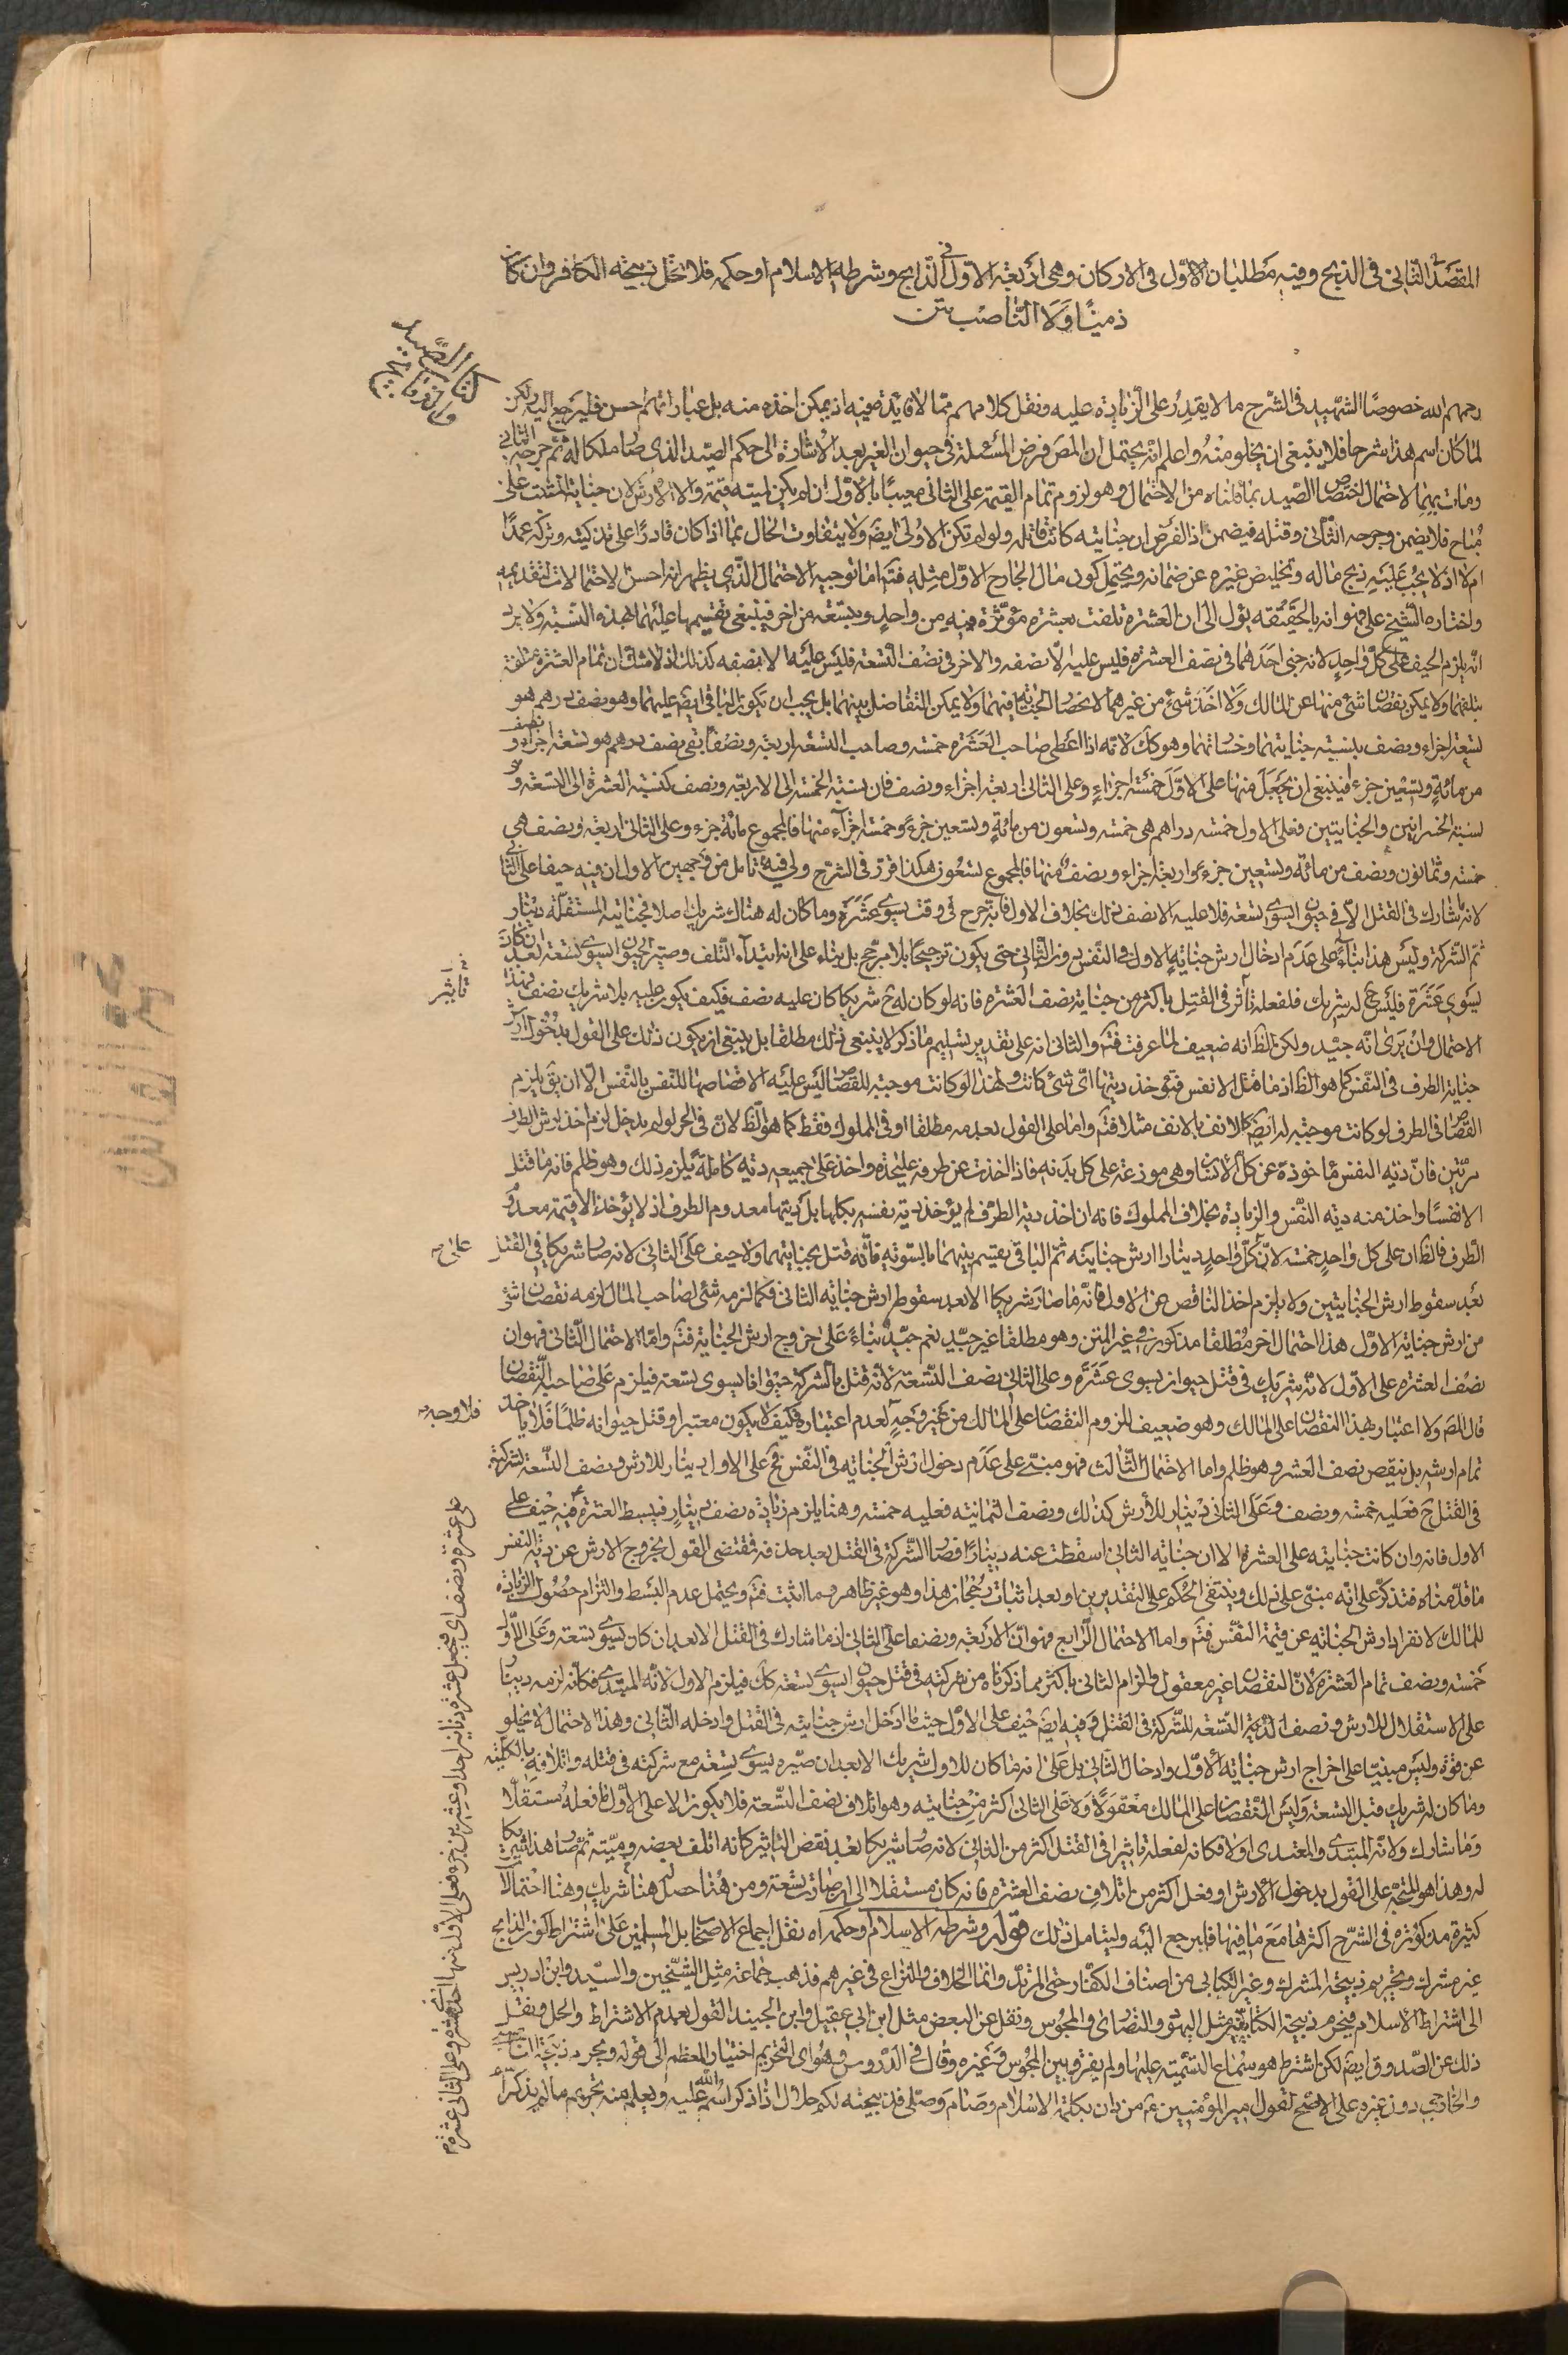 المقصد الثاني في الذبح وفيه مطلبان الاول في الاركان وهي اربعة الاول في الذابح وشرطه الاسلام او حكمه فلا تحل ذبيحة الكافر وان كان
ذميا ولا الناصب متن
كتاب الصيد
والذبايح
رحمهم الله خصوصا الشهيد في الشرح ما لا يقدر على الزيادة عليه ونقل كلامهم مما لا فائدة فيه اذ يمكن اخذه منه بل عباراتهم احسن فليرجع اليه ولكن
لما كان اسم هذا شرحا فلا ينبغي ان يخلو منه واعلم انه يحتمل ان المص فرض المسئلة في حيوان الغير بعد الاشارة الى حكم الصيد الذي صار ملكا له ثم جرحه الثاني
ومات بهما لاحتمال اختصاص الصيد بما قلناه من الاحتمال وهو لزوم تمام القيمة على الثاني معيبا بالاول ان لم يكن لميته قيمة والا الارش لان جناية المثبت على
مباح فلا يضمن وجرحه الثاني وقتله فيضمن اذ الفرض ان جنايته كانت قاتلة ولو لم تكن الاولى ايضا ولا يتفاوت الحال بما اذا كان قادرا على تذكيته وتركه عمدا
ام لا اذ لا يجب عليه ذبح ماله وتخليص غيره عن ضمانه ويحتمل كون مال الجارح الاول مثله فتم اما توجيه الاحتمال الذي يظهر انه احسن الاحتمالات لتقديمه
واختاره الشيخ علي فهو انه بالحقيقة يؤل الى ان العشرة تلفت بعشرة مؤثرة فيه من واحد وبتسعة من اخر فينبغي تقسيمها عليهما بهذه النسبة ولا يرد
انه يلزم الحيف على كل واحد لانه جنى احدهما في نصف العشرة فليس عليه الا نصفه والاخر في نصف التسعة فليس عليه الا نصفه كذلك اذ لا شك ان تمام العشرة متلفة
بتلفهما ولا يمكن نقصان شئ منها عن المالك ولا اخذ شئ من غيرهما لانحصار الجناية فيهما ولا يمكن التفاضل بينهما بل يجب ان تكون الباقي ايضا عليهما وهو نصف درهم هو
تسعة اجزاء ونصف بنسبة جنايتهما وخسرانهما وهو كك لانه اذا اعطى صاحب العشرة خمسة وصاحب التسعة اربعة ونصفا بقي نصف درهم هو تسعة اجزاء ونصف
من مائة وتسعين جزء فينبغي ان يجعل منها على الاول خمسة اجزاء وعلى الثاني اربعة اجزاء ونصف فان نسبة الخمسة الى الاربعة ونصف كنسبة العشرة الى التسعة و
نسبة الخسرانين والجنايتين فعلى الاول خمسة دراهم هي خمسة وتسعون من مائة وتسعين جزء وخمسة اجزاء منها فالمجموع مائة جزء وعلى الثاني اربعة ونصف هي
خمسة وثمانون ونصف من مائة وتسعين جزء واربعة اجزاء ونصف منها فالمجموع تسعون هكذا قرر في الشرح ولي فيه تامل من وجهين الاول ان فيه حيفا على الثاني
لانه ما شارك في القتل الا في حيوان يسوى تسعة فلا عليه الا نصف ذلك بخلاف الاول فانه جرح في وقت يسوى عشرة وما كان له هناك شريك اصلا فجنايته المستقلة دينار
ثم الشركة وليس هذا بناء على عدم ادخال ارش جناية الاول في النفس دون الثاني حتى يكون ترجيحا بلا مرجح بل بناء على انه ابتداء التلف وصير الحيوان يسوى تسعة بعد ان كان
يسوى عشرة فليس ح له شريك فلفعله تاثر في القتل باكثر من جناية نصف العشرة فانه لو كان له ح شريكا كان عليه نصف فكيف يكون عليه بلا شريك نصف فهذا
تاثير
الاحتمال وان يرى انه جيد ولكن الظ انه ضعيف لما عرفت فتم والثاني انه على تقدير تسليم ما ذكر لا ينبغي ذلك مطلقا بل ينبغي ان يكون ذلك على القول بدخول ارش
جناية الطرف في النفس كما هو الظ اذ ما قتل الا نفس فتؤخذ ديتها اي شئ كانت ولهذا لو كانت موجبة للقصاص ليس عليه الا قصاصها للنفس بالنفس الا ان يق يلزم
القصاص في الطرف لو كانت موجبة له ايضا كالانف بالانف مثلا فتم واما على القول بعدمه مطلقا او في المملوك فقط كما هو الظ لان في الحر لو لم يدخل لزم اخذ ارش الطرف
مرتين فان دية النفس ماخوذة عن كل الانسان وهي موزعة على كل بدنه فاذا اخذت عن طرفه عليحدة واخذ على جميعه دية كاملة يلزم ذلك وهو ظلم فانه ما قتل
الا نفسا واخذ منه دية النفس والزيادة بخلاف المملوك فانه ان اخذ دية الطرف لم يؤخذ دية نفسه بكمالها بل ديتها معدوم الطرف اذ لا يؤخذ الا قيمة معدوم
الطرف فالظ ان على كل واحد خمسة لان كل واحد دينارا ارش جنايته ثم الباقي يقسم بينهما بالسوية فانه قتل بجنايتهما ولا حيف على الثاني لانه صار شريكا في القتل
بعد سقوط ارش الجنايتين ولا يلزم اخذ الناقص عن الاول فانه ما صار شريكا الا بعد سقوط ارش جناية الثاني فكما لزمه شئ لصاحب المال لزمه نقصان شئ
من ارش جناية الاول هذا احتمال اخر مطلقا مذكور في غير المتن وهو مطلقا غير جيد نعم جيد بناء على خروج ارش الجناية فتم واما الاحتمال الثاني فهو ان
نصف العشرة على الاول لانه شريك في قتل حيوان يسوى عشرة وعلى الثاني نصف التسعة لانه قتل بالشركة حيوانا يسوى تسعة فيلزم على صاحبه النقصان
قال المص ولا اعتبار بهذا النقصان على المالك وهو ضعيف للزوم النقصان على المالك من غير وجه لعدم اعتباره فكيف لا يكون معتبرا وقتل حيوانه ظلما فلا ياخذ
فلا وجه
تمام ارشه بل ينقص نصف العشر وهو ظلم واما الاحتمال الثالث فهو مبني على عدم دخول ارش الجناية في النفس فح على الاول دينار للارش ونصف التسعة لشركته
في القتل ح فعليه خمسة ونصف وعلى الثاني دينار للارش كذلك ونصف الثمانية فعليه خمسة وهنا يلزم زيادة نصف دينار فيبسط العشرة فيه حيف على
الاول فانه وان كانت جنايته على العشرة الا ان جناية الثاني اسقطت عنه دينارا فصار الشركة في القتل بعد حذفه فمقتضى القول بخروج الارش عن دية النفس
ما قدمناه فتذكر على انه مبني على ذلك وينتفي الحكم على التقديرين او بعد اثبات رجحان هذا وهو غير ظاهر وما اثبت فتم ويحتمل عدم البسط والتزام حصول الزيادة
للمالك لانفراد ارش الجناية عن قيمة النفس فتم واما الاحتمال الرابع فهو ان الاربعة ونصفا على الثاني اذ ما شارك في القتل الا بعد ان كان يسوى تسعة وعلى الاول
خمسة ونصف تمام العشرة لان النقصان غير معقول والزام الثاني باكثر مما ذكرناه من شركته في قتل حيوان يسوى تسعة كك فيلزم الاول لانه المبتدى فكانه لزمه دينار
على الاستقلال للارش ونصف الدية التسعة للشركة في القتل وفيه ايضا حيف على الاول حيث ما ادخل ارش جنايته في القتل وادخله الثاني وهذا الاحتمال لا يخلو
عن قوة وليس مبنيا على اخراج ارش جناية الاول وادخال الثاني بل على انه ما كان للاول شريك الا بعد ان صيره يسوى تسعة مع شركته في قتله واتلافه بالكلية
وما كان له شريك قبل التسعة وليس النقصان على المالك معقولا ولا على الثاني اكثر من جنايته وهو اتلاف نصف التسعة فلا يكون الا على الاول ففعله مستقلا
وما شارك ولانه المبتدى والمعتدى اولا فكانه لفعله تاثيرا في القتل اكثر من الثاني لانه صار شريكا بعد نقض التاثير كانه اتلف بعضه وميته ثم صار هذا شريكا
له وهذا هو المتجه على القول بدخول الارش او فعل اكثر من اتلاف نصف العشرة فانه كان مستقلا الى ان صارت تسعة ومن هنا حصل هنا شريك وهنا احتمالات
كثيرة مذكورة في الشرح اكثرها مع ما فيها فليرجع اليه وليتامل ذلك قوله وشرطه الاسلام وحكمه اه نقل اجماع الاصحاب بل المسلمين على اشتراط كون الذابح
غير مشرك وتحريم ذبيحة المشرك وغير الكتابي من اصناف الكفار حتى المرتد وانما الخلاف والنزاع في غيرهم فذهب جماعة مثل الشيخين والسيد وابن ادريس
الى اشتراط الاسلام فيحرم ذبيحة الكتابية مثل اليهود والنصارى والمجوس ونقل عن البعض مثل ابن ابي عقيل وابن الجنيد القول بعدم الاشتراط والحل ونقل
ذلك عن الصدوق ايضا لكن اشترط هو سماع التسمية عليها ولم يفرق بين المجوس وغيره وقال في الدروس وهو اي التحريم اختيار المعظم الى قوله ويحرم ذبيحة الناصب
والخارجي دون غيره على الاصح لقول امير المؤمنين ع من دان بكلمة الاسلام وصام وصلى فذبيحته لكم حلال اذا ذكر اسم الله عليه ويعلم منه تحريم ما لم يذكر
على عشرة ونصف اي فيجعل عشرة دنانير احدا وعشرين جزء فعلى الاول منها احد عشر وعلى الثاني عشرة